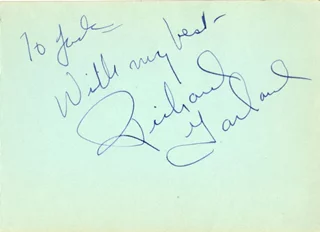 To Jack
With my best
Richard
Garland